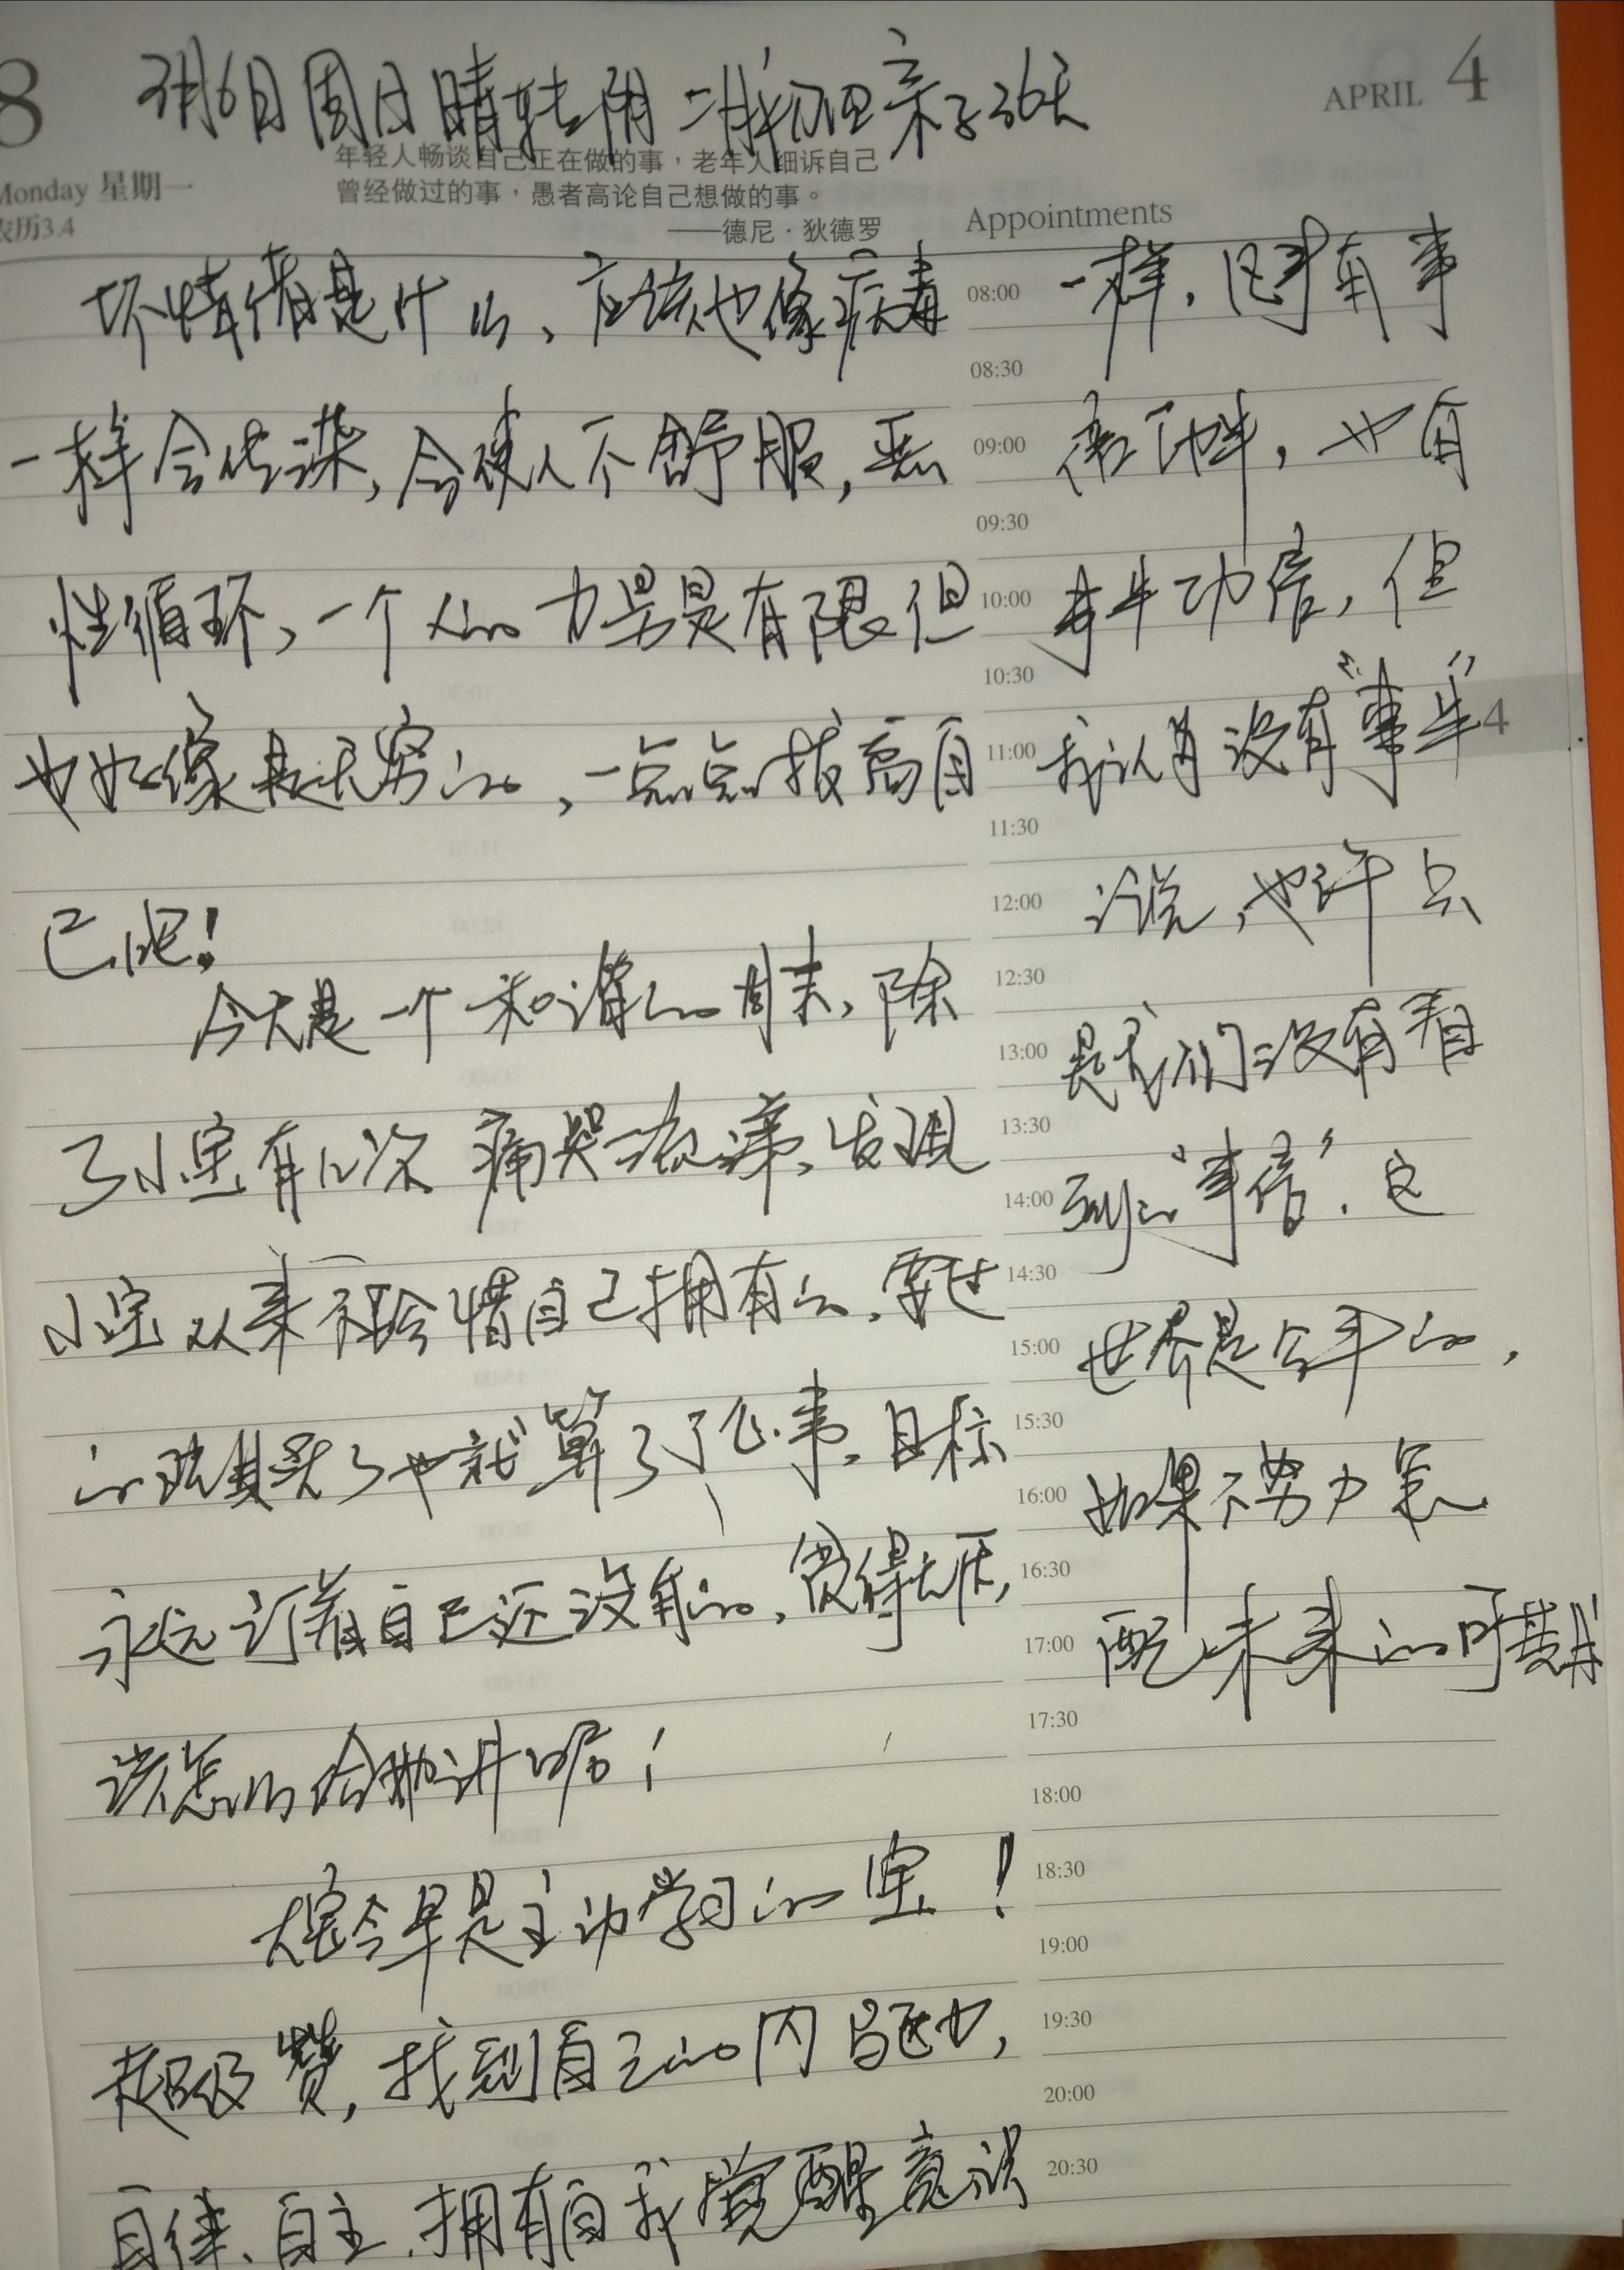 8
3月6日 周日 晴转阴 亲子36天
APRIL 4
Monday 星期一
农历3.4
年轻人畅谈自己正在做的事，老年人细诉自己
曾经做过的事，愚者高论自己想做的事。
——德尼·狄德罗
Appointments
坏情绪是什么、应该也像病毒
一样会传染,会使人不舒服,恶
性循环、一个人的力量是有限但
也好像是无穷的,一点点拔高自
己吧!
今天是一个和谐的周末,除
了小宝有几次痛哭流涕,发现
小宝从来不珍惜自己拥有的,要过
的玩具丢了也就算了了了事,目标
永远订着自己还没有的,贪得无厌,
该怎么给她讲呢!
大宝今早是主动学习的宝!
超级赞,找到自己的内驱力,
自律、自主,拥有自我觉醒意识
一样,同时有事
倍功半,也有
事半功倍,但
我认为没有"事半"
说,也许只
是我们没有看
到的"事倍",这
世界是公平的,
如果不努力怎
配未来的可期
08:00
08:30
09:00
09:30
10:00
10:30
11:00
11:30
12:00
12:30
13:00
13:30
14:00
14:30
15:00
15:30
16:00
16:30
17:00
17:30
18:00
18:30
19:00
19:30
20:00
20:30
4